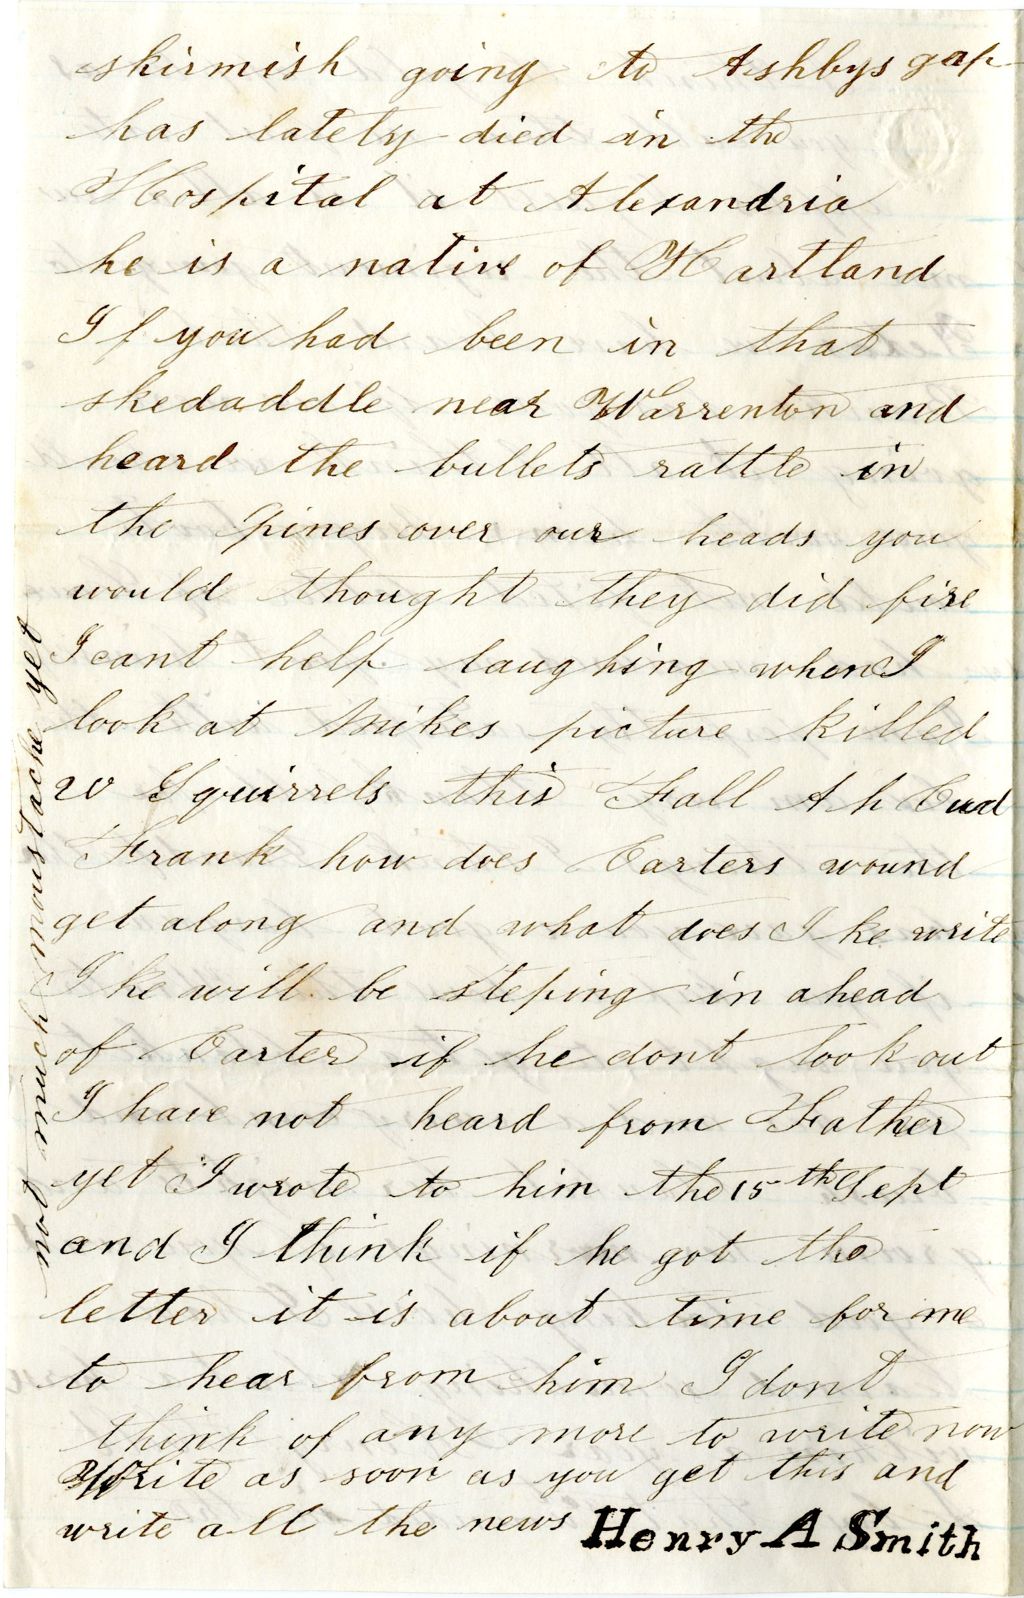 skirmish going to Ashbys gap
has lately died in the
Hospital at Alexandria
he is a native of Hartland
If you had been in that
skedaddle near Warrenton and
heard the bullets rattle in
the Pines over our heads you
would thought they did fire
I cant help laughing when I
look at Mikes picture killed
20 Squirrels this Fall Ah Cud
Frank how does Carters wound
get along and what does Ike write
Ike will be steping in ahead
of Carter if he dont look out
I have not heard from Father
yet I wrote to him the 15th Sept
and I think if he got the
letter it is about time for me
to hear from him I dont
think of any more to write now
Write as soon as you get this and
write all the news Henry A Smith
not much moustache yet